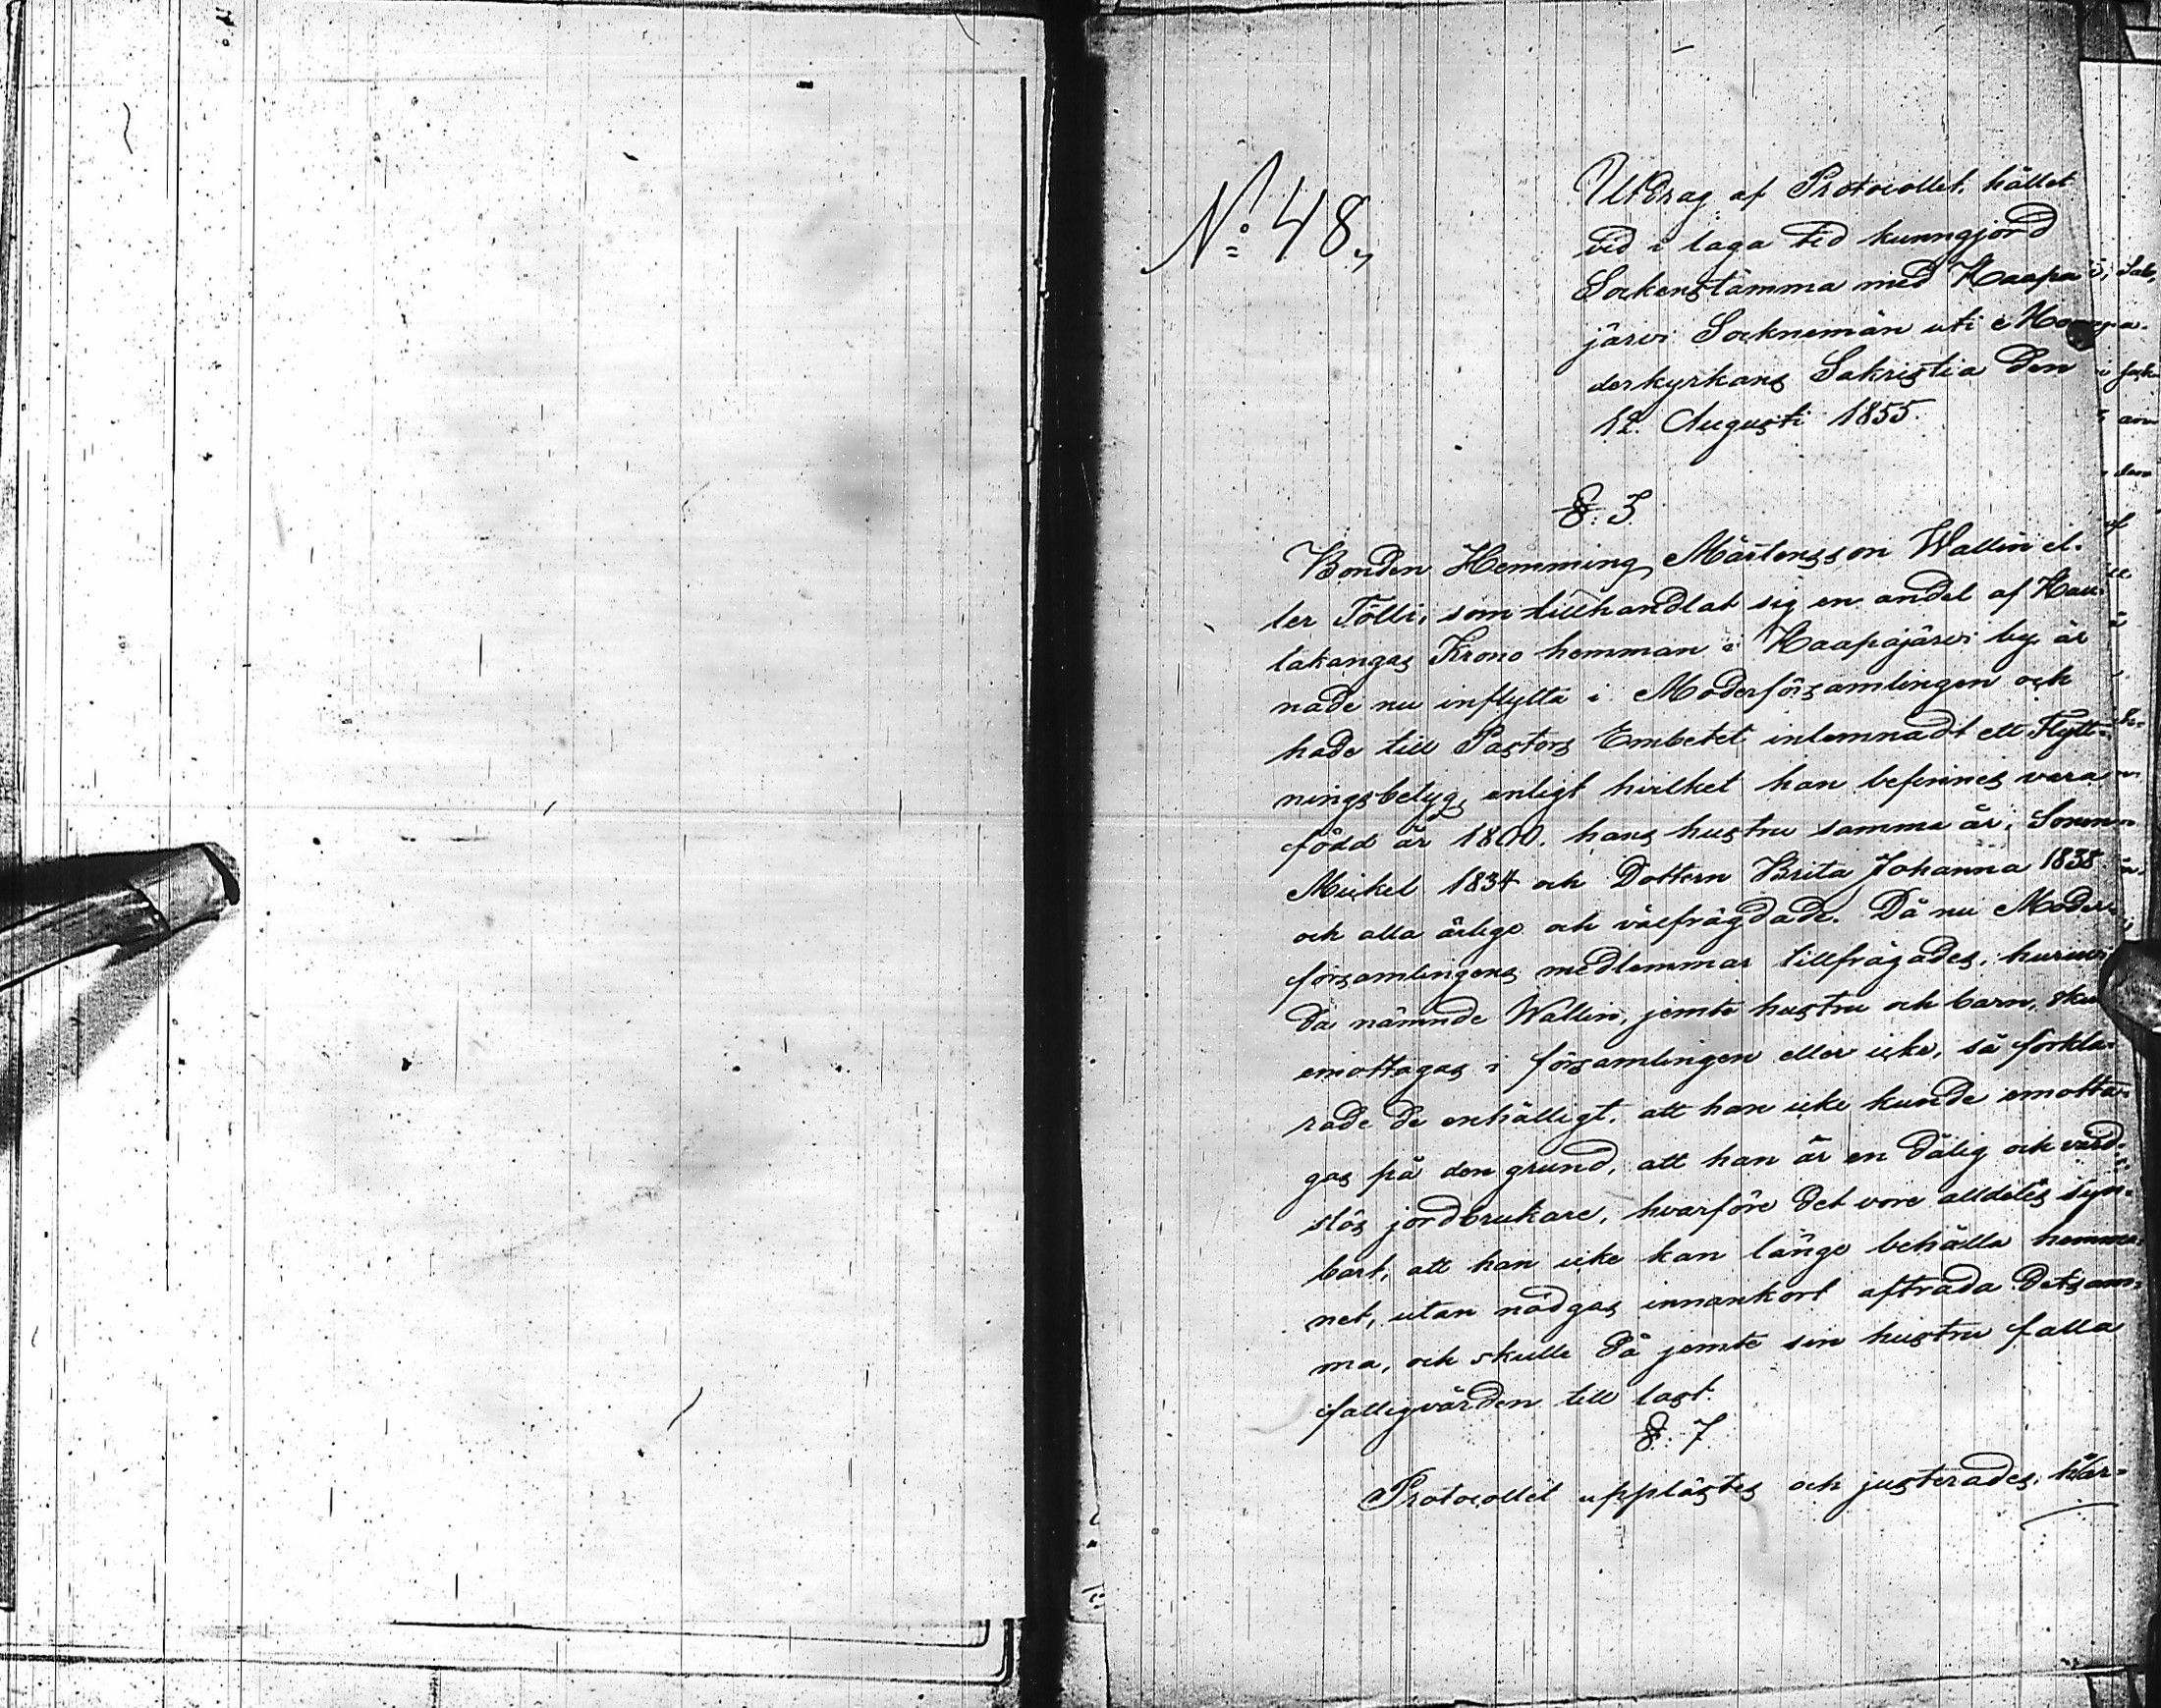 No 48,
Utdrag af Protocollet, hållet
vid i laga tid kunngjord
Sockenstämma med Haapa
järvi Socknemän uti Mo
derkyrkans Sakristia den
12. Augusti 1855.
§. 3.
Bonden Hemming Mårtensson Wallin el-
ler Tölli, som tillhandlat sig en andel af Hau-
takangas Krono hemman i Haapajärvi by är
nade nu inflytta i Moderförsamlingen och
hade till Pastors Embetet inlemnadt ett Flytt-
ningsbetyg, enligt hvilket han befinnes vara
född år 1800. hans hustru samma år, Sonen
Mickel 1834 och Dottern Brita Johanna 1838
och alla ärlige och välfrägdade. Då nu Moder-
församlingens medlemmar tillfrågades, huruvi
da nämnde Wallin, jemte hustru och barn, sku
emottagas i församlingen eller icke, så förkla-
rade de enhälligt, att han icke kunde emotta-
gas på den grund, att han är en dålig och vård-
slös jordbrukare, hvarföre det vore alldeles syn-
bart, att han icke kan länge behålla hemma-
net, utan nödgas innankort afträda detsam-
ma, och skulle då jemte sin hustru falla
fattigvården till last.
§. 7
Protocollet upplästes och justerades, här-